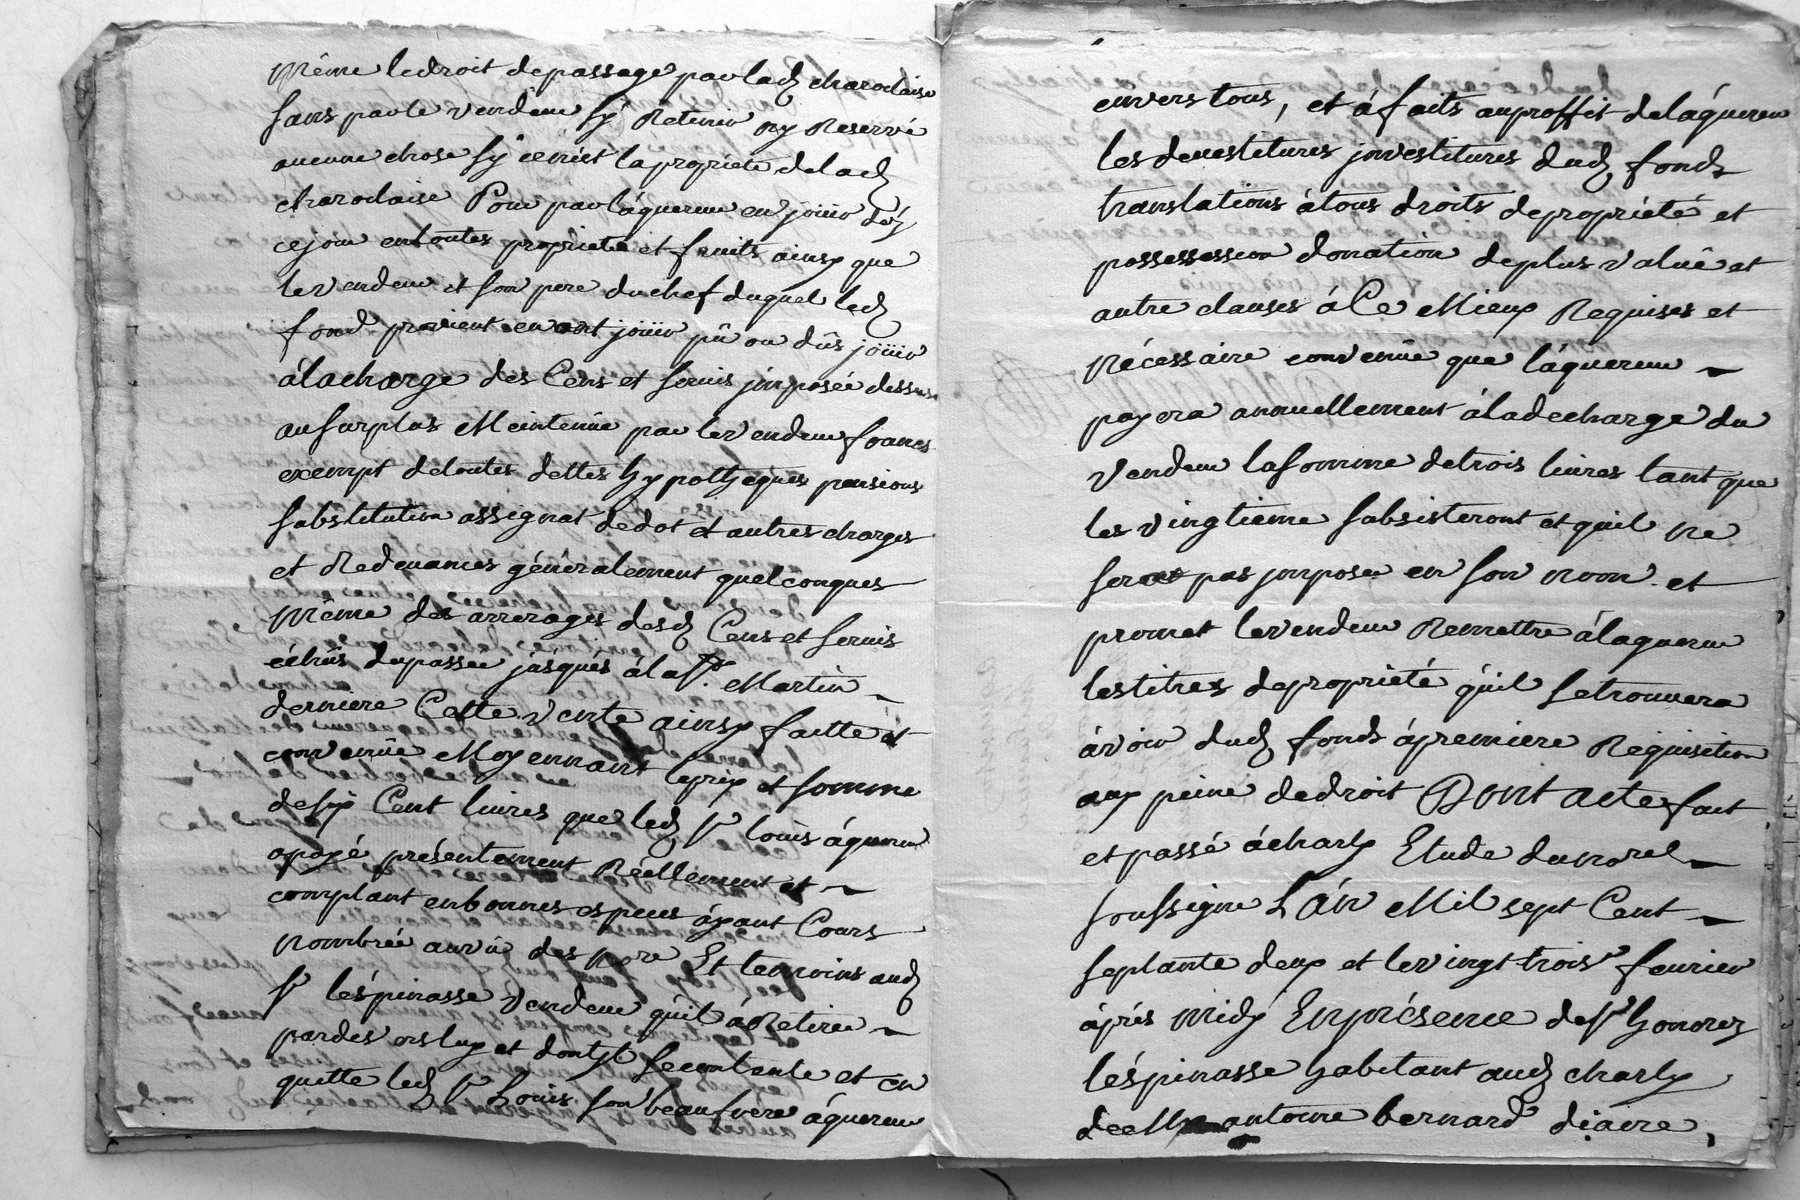 même le droit de passage par lad charodaise
sans par le vendeur sy Retenir ny Reservé
aucune chose sy ce n'est la propriete de lad
charodaise Pour par láquereur en joüir déz
ce jour en toutes propriete et fruits ainsy que
le vendeur et son pere du chef duquel led
fond provient en ont joüir pû ou dûs joüir
á la charge des Cens et servis jmposée dessus
au surplus Meintenüe par le vendeur francs
exempt de toutes dettes hypotheques pensions
substitution assignat de dot et autres charges
et Redevances généralement quelconques
même des arrerages desd Cens et servis
échûs du passee jusqués á la st Martin
derniere Cette vente ainsy faitte et
convenüe Moyennant le prix et somme
de six Cent livres que led sr loüis áquereur
a payé présentement Réellement et
comptant en bonnes especes áyant Cours
nombrée au vû des nore Et temoins aud
sr léspinasse vendeur qúil á Retirée
par devers luy et dont jl se contente et en
quitte led sr Louis son beaufrere áquereur
envers tous, et á faits au proffit de láquereur
les devestitures jnvestitures dud fonds
translations á tous droits de propriété et
possessession donation de plus valüe et
autre clauses á Ce Mieux Requises et
nécessaire convenüe que láquereur
payera annuellement á la decharge du
vendeur la somme de trois livres tant que
les vingtieme subsisteront et quil ne
seront pas jmposée en son nom et
promet le vendeur Remettre á laquereur
les titres de propriété qúil se trouvera
ávoir dud fonds á premiere Requisition
aux peine de droit Dont acte fait
et passé á charly Etude du norel
soussigne L'án Mil sept Cent
septante deux et le vingt trois fevrier
áprés midy En présence de sr honorez
léspinasse habitant aud charly
de Me antoine bernard diacre,